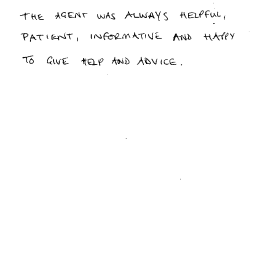 THE AGENT WAS ALWAYS HELPFUL,
PATIENT, INFORMATIVE AND HAPPY
TO GIVE HELP AND ADVICE.